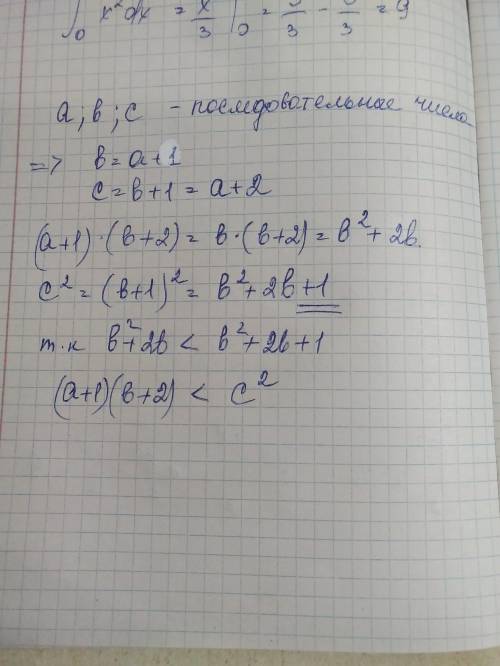 ∫₀ x²dx = x/3 |₀ = 3/3 - 0/3 = 9
a; в; c - последовательные числа
=> в = a+1
c = в+1 = a+2
(a+1)·(в+2) = в·(в+2) = в² + 2в.
c² = (в+1)² = в² + 2в + 1
т.к в² + 2в < в² + 2в + 1
(a+1)(в+2) < c²